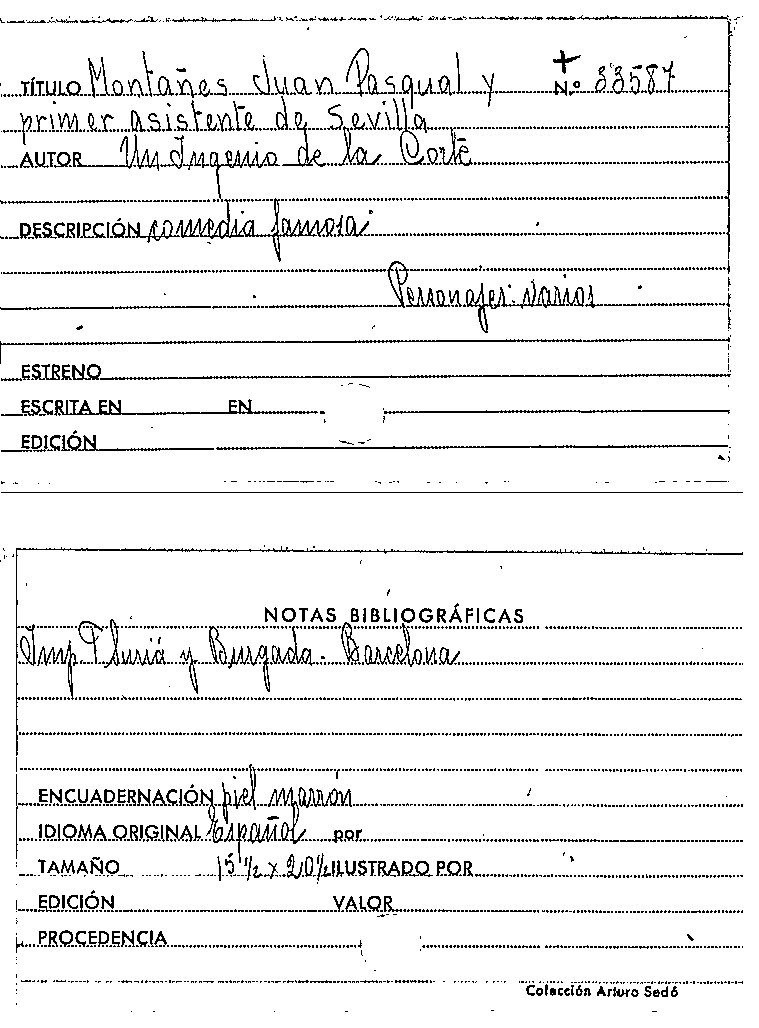 TÍTULO Montañes Juan Pasqual y + N.º 33587
primer asistente de Sevilla
AUTOR Un Ingenio de la Corte
DESCRIPCIÓN comedia famosa
Personajes: varios
ESTRENO
ESCRITA EN EN
EDICIÓN
NOTAS BIBLIOGRÁFICAS
Imp. T. Suriá y Burgada. Barcelona
ENCUADERNACIÓN piel marrón
IDIOMA ORIGINAL Español por
TAMAÑO 15 1/2 x 20 1/2 ILUSTRADO POR
EDICIÓN VALOR
PROCEDENCIA
Colección Arturo Sedó